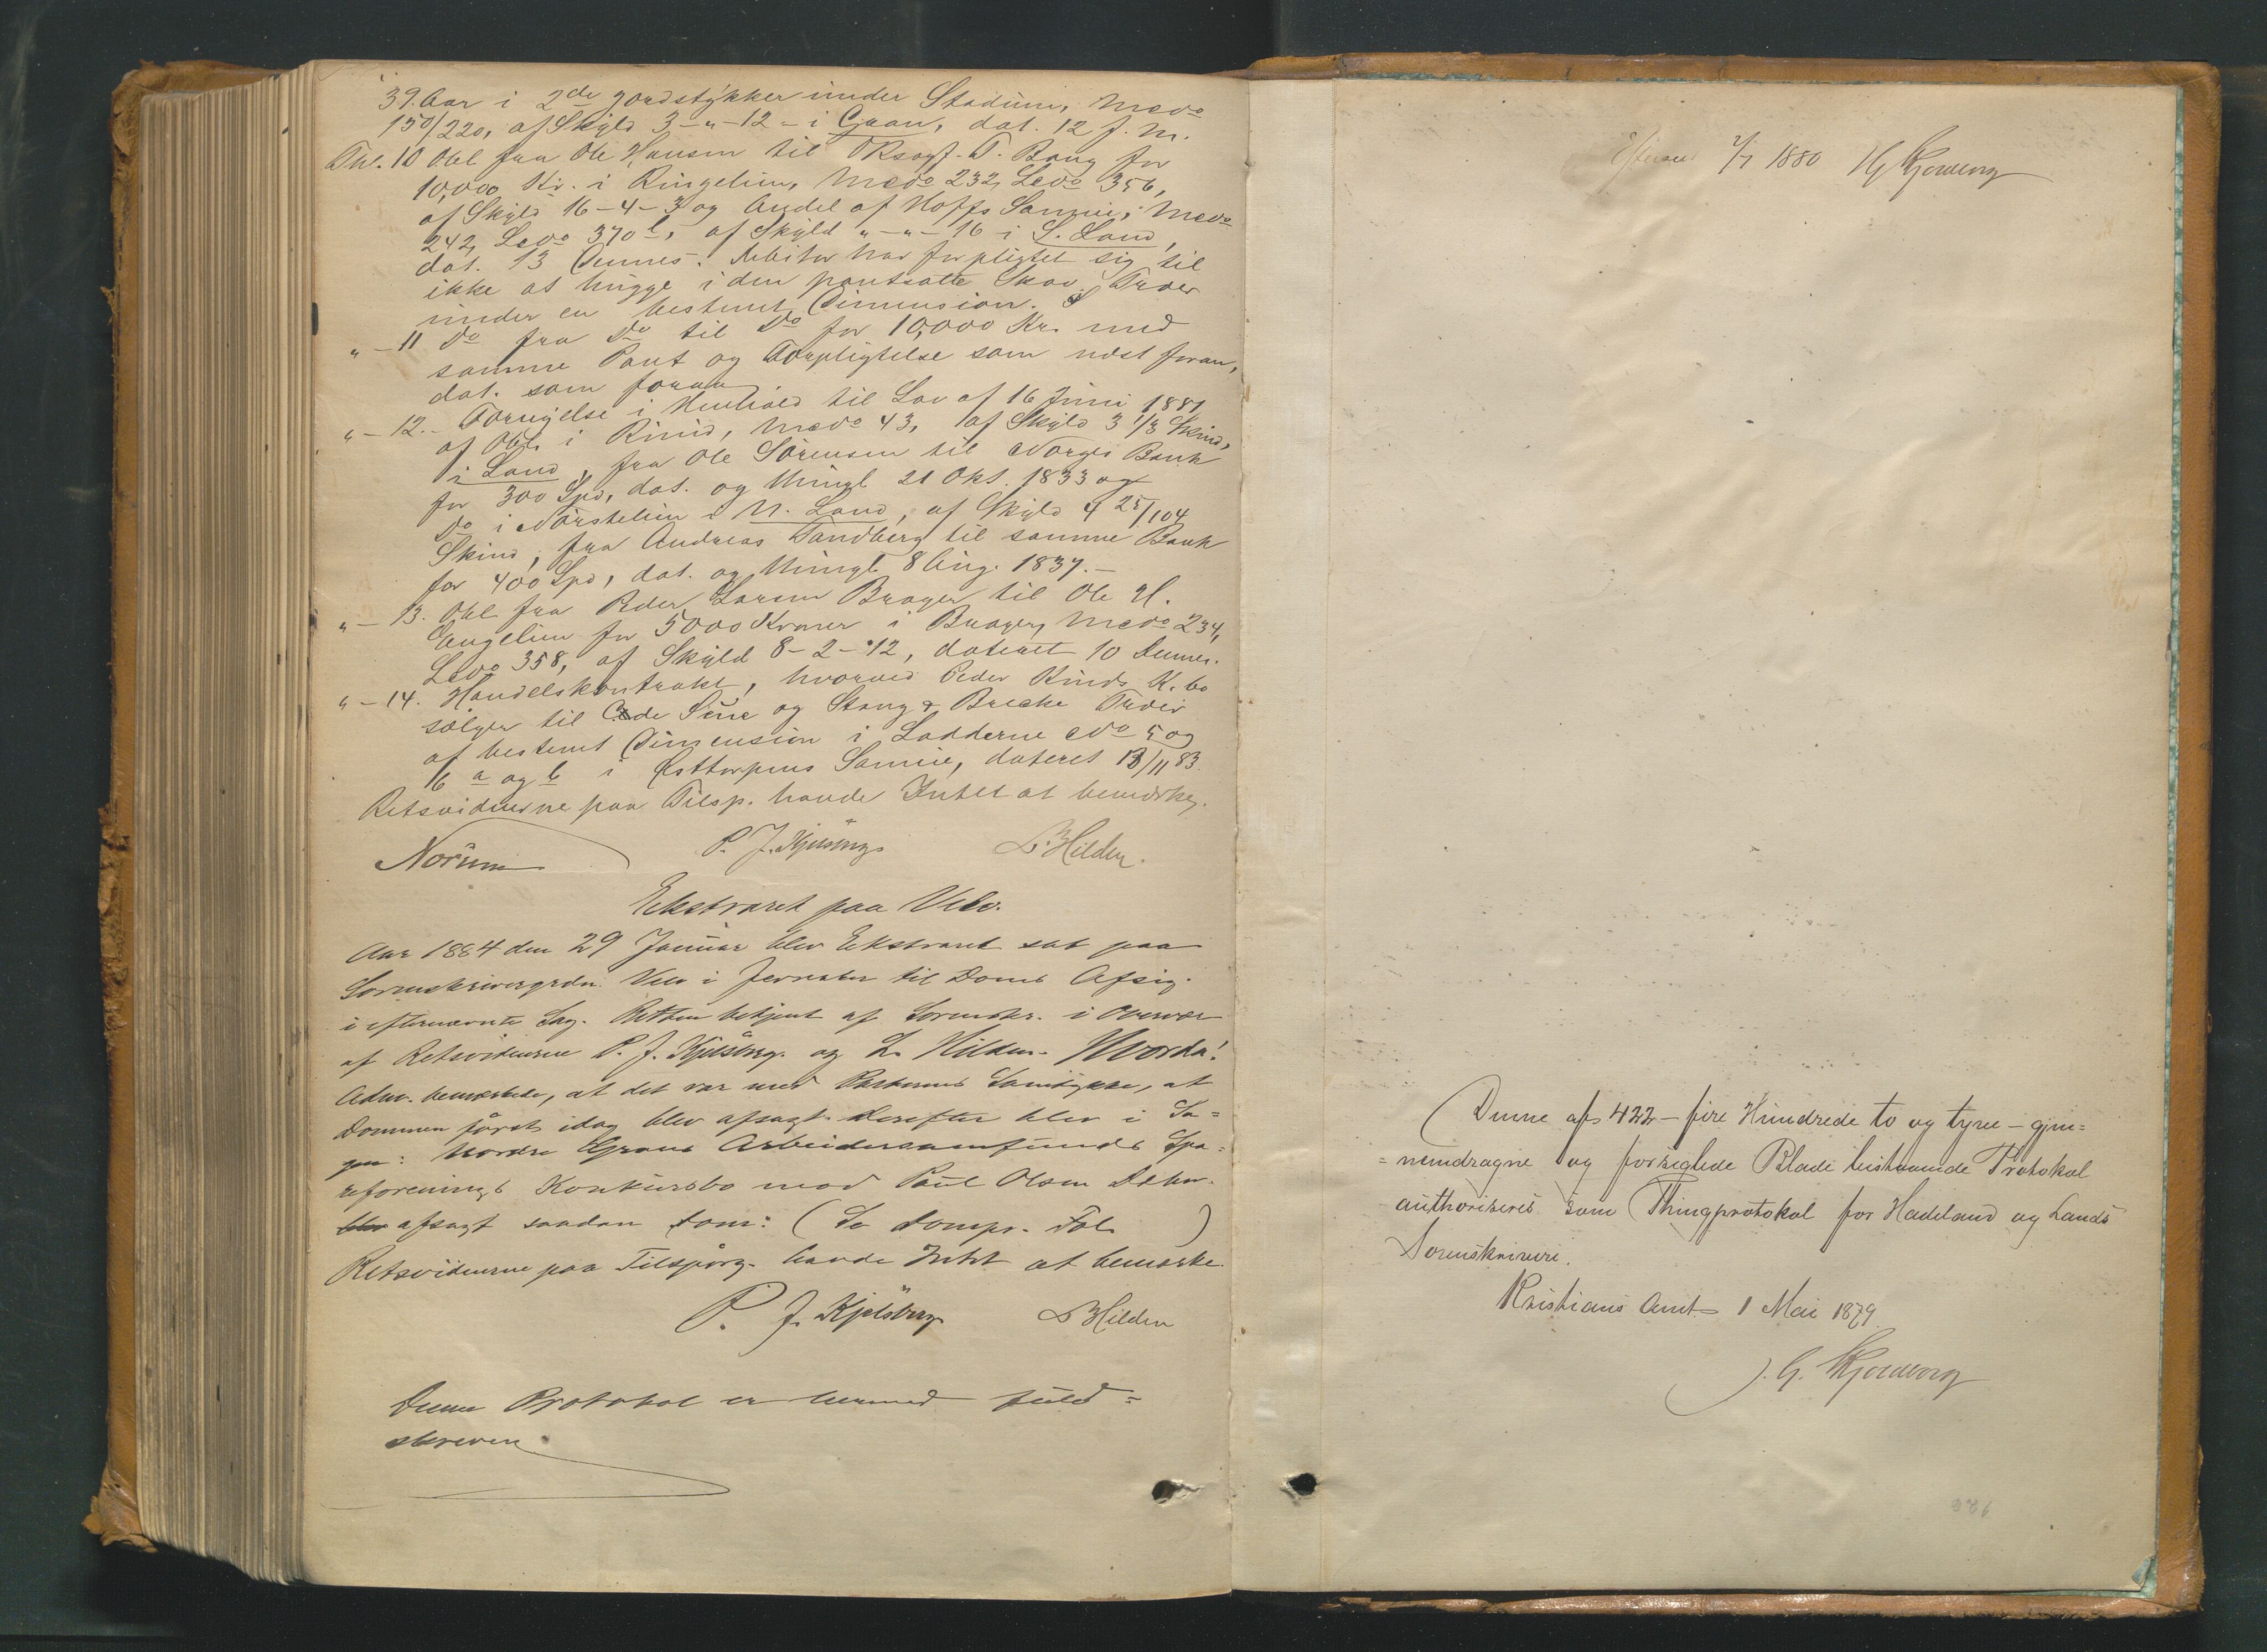 39. Aar i 2de Jordstykker under Stadum, Mno
150/220, af Skyld 3-"-12- i Gran, dat. 12 f. M.
No. 10 Obl fra Ole Hansen til O.Rsagf. T. Bang for
10,000 Kr. i Ringelien, Mno 232, Lno 356,
af Skyld 16-4-3 og Andel af Hoffs Sameie, Mno
242, Lno 370 b, af Skyld "-"-16 i S. Land,
dat. 13 Dennes. Debitor har forpligtet sig til
ikke at hugge i den pantsatte Skov Træer
under en bestemt Dimension.
"-11 Do fra Do til Do for 10,000 Kr. med
samme Pant og Forpligtelse som næst foran,
dat. som foran
"-12.- Fornyelse i Henhold til Lov af 16 Juni 1881
af Obl. i Rinid, Mno 43, af Skyld 3 1/3 Skind,
i Land, fra Ole Sörensen til Norges Bank
for 300 Spd, dat. og thingl. 21 Okt. 1833 og
Do i Nörstelien i N. Land, af Skyld 4 25/104
Skind, fra Andreas Tandberg til samme Bank
for 400 Spd, dat. og thingl. 8 Aug. 1837.-
"-13. Obl fra Peder Larsen Brager til Ole H.
Engelien for 5000 Kroner i Brager, Mno 234,
Lno 358, af Skyld 8-2-12, dateret 10 Dennes.
"-14. Handelskontrakt, hvorved Peder Rinds K. bo
sælger til Ode Sue og Stang & Brecke Træer
af bestemt Dimension i Lodderne No 5 og
16 a og b i Østtorpens Sameie, dateret 13/11 83.
Retsvidnerne paa Tilsp. havde Intet at bemærke.
Norum P. J. Kjelsberg L. Hilden.
Ekstraret paa Velo.
Aar 1884 den 29 Januar blev Ekstraret sat paa
Sorenskrivergrdn. Velo i Jevnaker til Doms Afsig.
i efternævnte Sag. Retten betjent af Sorenskr. i Overvær
af Retsvidnerne P. J. Kjelsberg og L. Hilden. Hvorda!
Adm. bemærkede, at det var med Parternes Samtykke, at
Dommen först idag blev afsagt. Derefter blev i Sa=
gen: Nordre Grans Arbeidersamfunds Spa=
reforenings Konkursbo mod Paul Olsen Dæhn.
blev afsagt saadan Dom: (Se Dompr. Fol. )
Retsvidnerne paa Tilspørg. havde Intet at bemærke.
P. J. Kjelsberg L Hilden
Denne Protokol er hermed fuld=
skreven
Efterseet 2/7 1880 HG Kjorborg
Denne af 422 - fire Hundrede to og tyve - gjen=
=nemdragne og forseglede Blade bestaaende Protokol
authoriseres som Thingprotokol for Hadeland og Lands
Sorenskriveri.
Kristians Amt 1 Mai 1879.